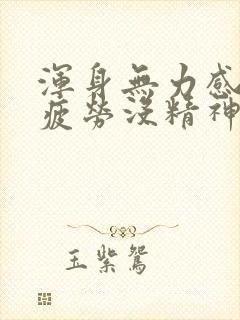 渾身無力感
疲勞沒精神
玉紫鴛